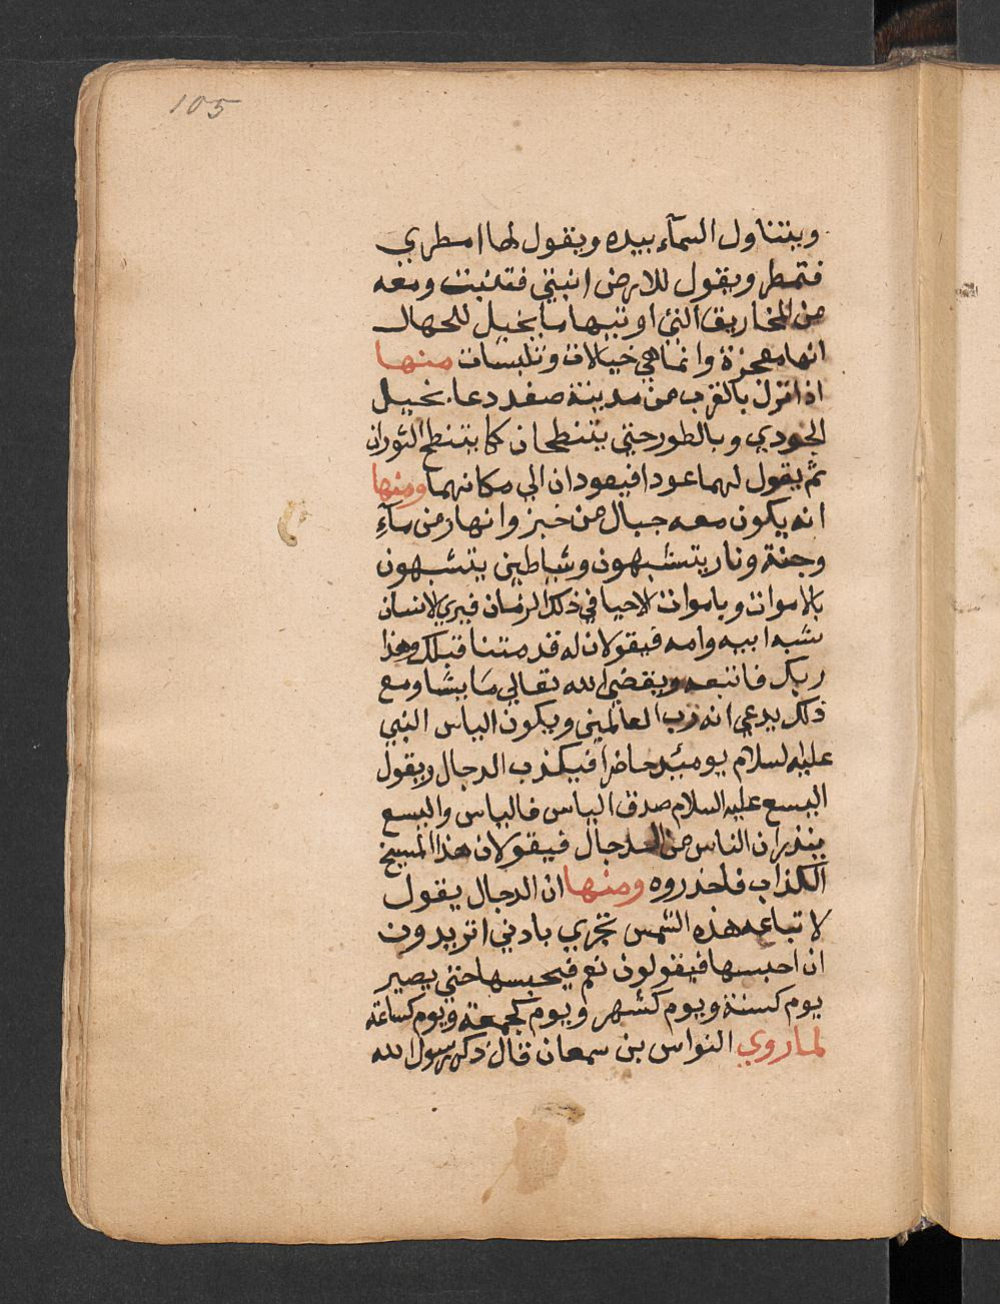 105
ويتناول السمآء بيده ويقول لها امطري
فتمطر ويقول للارض انبتي فتنبت ومعه
من المخاريق التي اوتيها ما يخيل للجهال
انها معجزة وانما هي خيالات وتلبسات منها
اذا نزل بالقرب من مدينة صفد دعا بخيل
الجودي وبالطور حتي يتنطحان كما يتنطح الثوران
ثم يقول لهما عودا فيعودان الي مكانهما ومنها
انه يكون معه جبال من خبز وانهار من مآء
وجنة ونار يتشبهون وشياطين يتشبهون
بالاموات وباموات الاحيا في ذلك الزمان فيري الانسان
شبه ابيه وامه فيقولان له قد متنا قبلك وهذا
ربك فاتبعه ويقضي الله تعالي ما يشا ومع
ذلك يدعي انه رب العالمين ويكون الياس النبي
عليه السلام يومئذ حاضرا فيكذب الدجال ويقول
اليسع عليه السلام صدق الياس فالياس واليسع
ينذران الناس من الدجال فيقولان هذا المسيح
الكذاب فاحذروه ومنها ان الدجال يقول
لاتباعه هذه الشمس تجري باذني اتريدون
ان احبسها فيقولون نعم فيحبسها حتي يصير
يوم كسنة ويوم كشهر ويوم كجمعة ويوم كساعة
لما روي النواس بن سمعان قال ذكر رسول الله